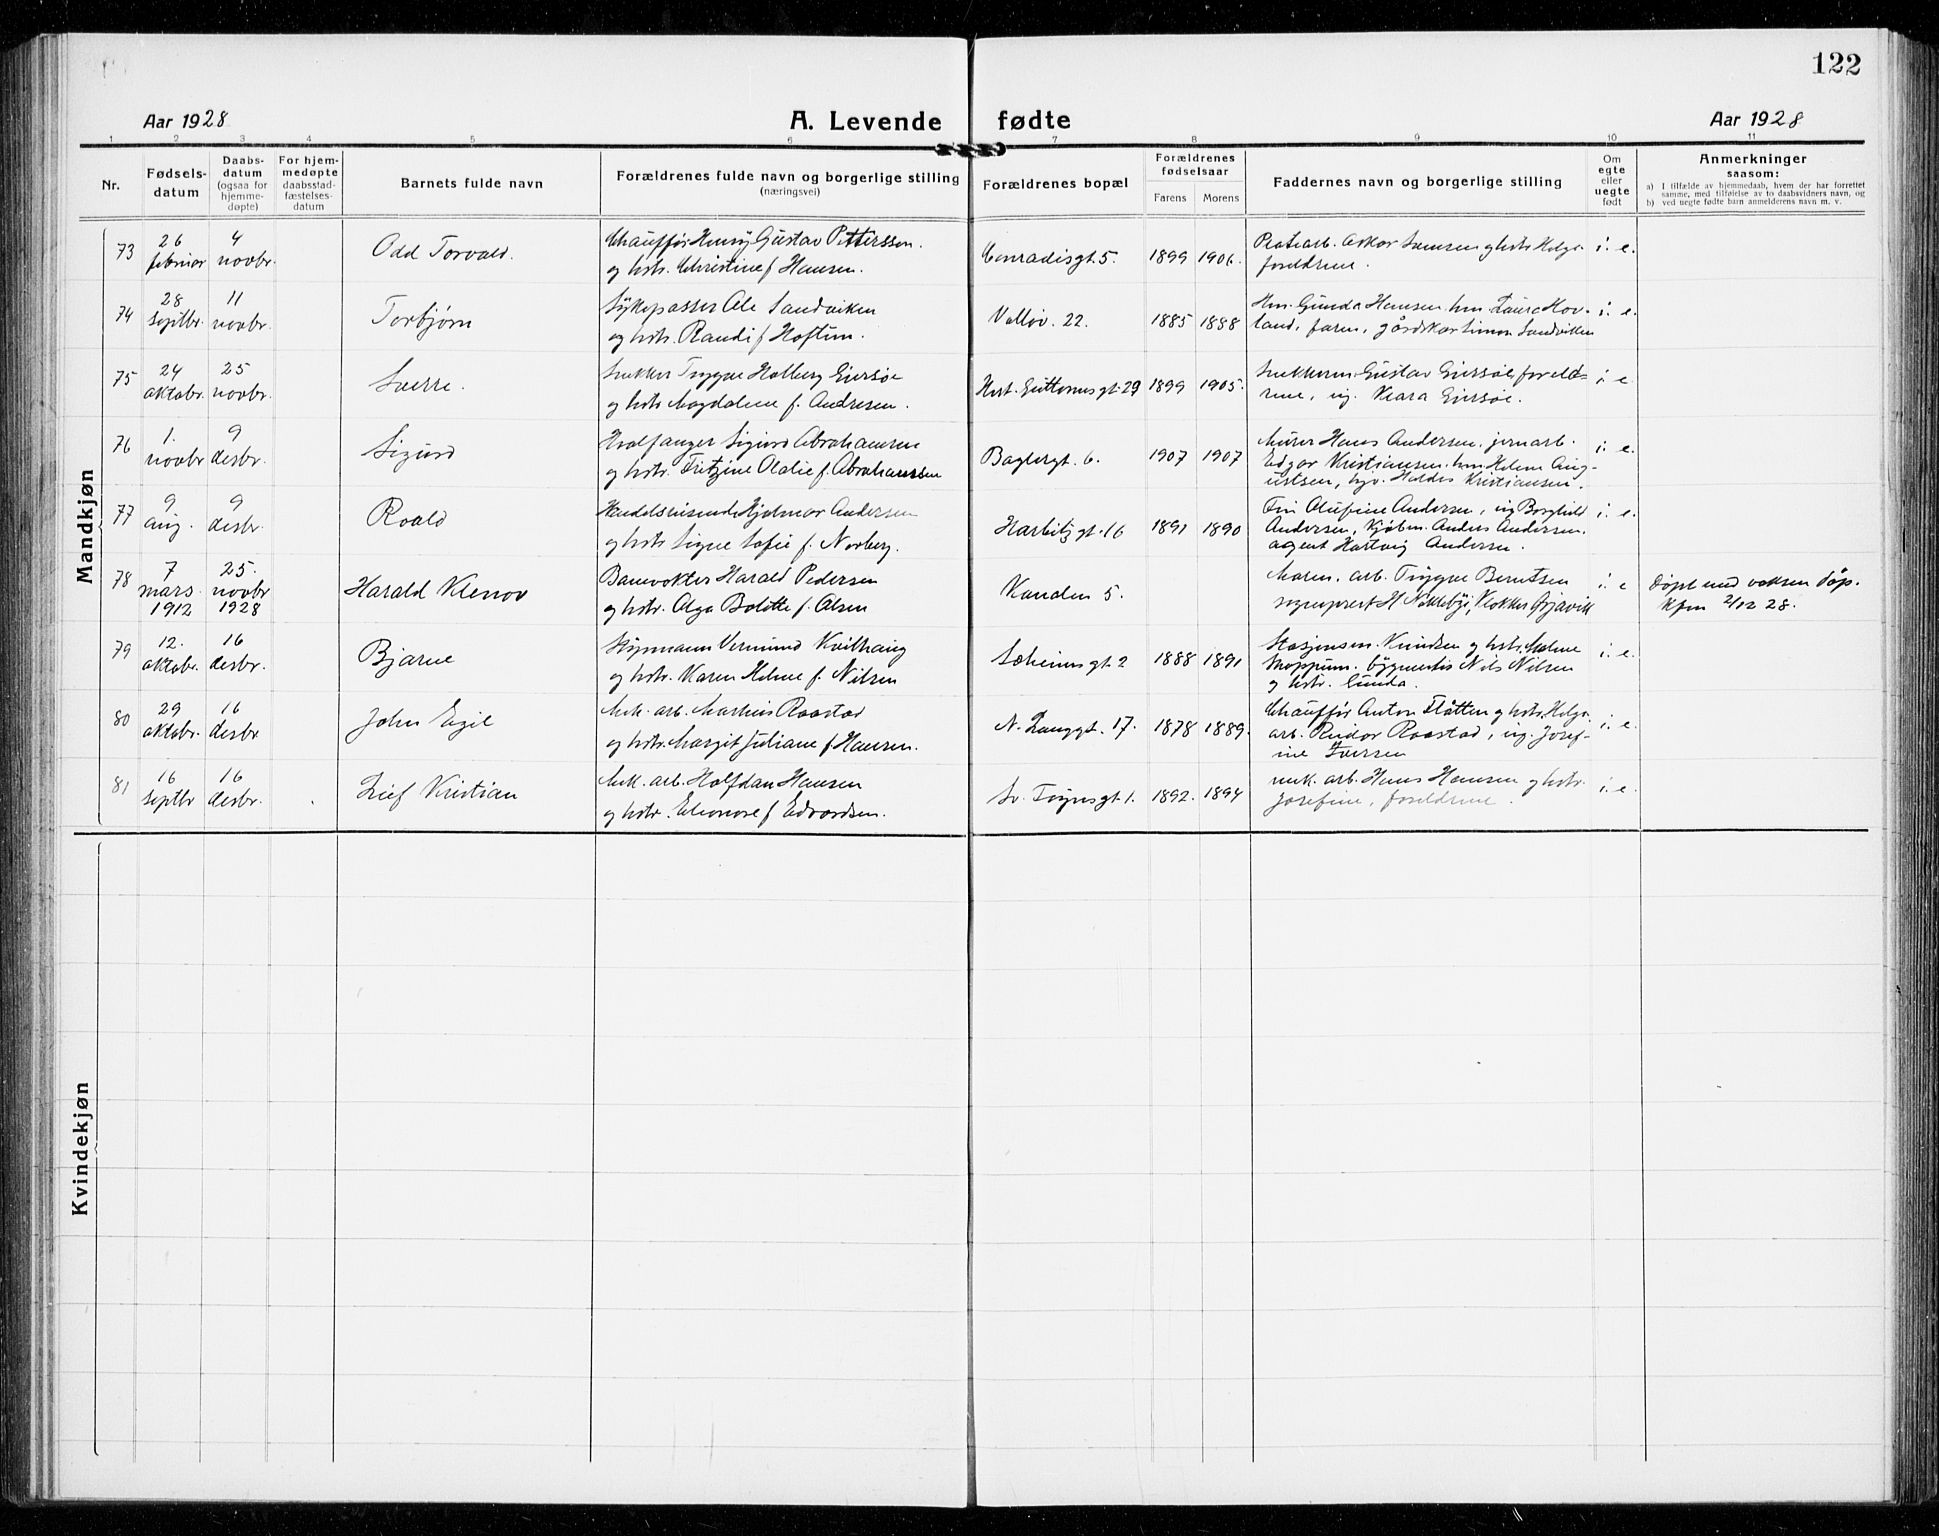 122
Aar 1928
A. Levende fødte
Aar 1928
1 2 3 4 5 6 7 8 9 10 11
Nr.
Fødsels-
datum
Daabs-
datum
(ogsaa for
hjemme-
døpte)
For hjem-
medøpte
daabsstad-
fæstelses-
datum
Barnets fulde navn
Forældrenes fulde navn og borgerlige stilling
(næringsvei)
Forældrenes bopæl
Forældrenes
fødselsaar
Farens Morens
Faddernes navn og borgerlige stilling
Om
egte
eller
uegte
født
Anmerkninger
saasom:
a) I tilfælde av hjemmedaab, hvem der har forrettet
samme, med tilføielse av to daabsvidners navn, og
b) ved uegte fødte barn anmelderens navn m. v.
Mandkjøn
73
26
februar
4
novbr.
Odd Torvald.
Chauffør Henry Gustav Pettersson.
og hstr. Christine f Hansen.
Conradisgt. 5.
1899 1906.
Oskar Svensen og hstr. Helga.
foreldrene.
i. e.
74
28
septbr.
11
novbr.
Torbjørn
Sykepasser Ole Sandviken
og hstr. Randi f Hoftun.
Valløv. 22.
1885 1888
Hm. Gunda Hansen. hm. Laura Hov-
land, faren, gårdskar Simon Sandviken
i. e.
75
24
oktobr.
25
novbr.
Sverre.
Snekker Trygve Holberg Giersøe
og hstr. Magdalene f. Andresen.
Hert. Guttormsgt. 29
1899 1905.
Gustav Giersøe, foreld-
rene, ug. Klara Giersøe.
i e.
76
1.
novbr
9
desbr.
Sigurd
Hvalfanger Sigurd Abrahamsen
og hstr. Fritzine Olalie f. Abrahamsen
Baglergt. 6.
1907 1907
Murer Hans Andersen, jernarb.
Edgar Kristiansen. hm. Helene Aug-
ustsen, Haldis Kristiansen.
i. e.
77
9
aug.
9
desbr.
Roald
Handelsreisende Hjalmar Andersen
og hstr. Signe Sofie f. Norberg.
Harbitzgt. 16
1891 1890
Olufine Andersen, ug Borghild
Andersen, kjøbm. Anders Andersen.
agent Hartvig Andersen.
i. e.
78
7
mars.
1912
25.
novbr
1928
Harald Klenov
Banevokter Harald Pedersen
og hstr. Olga Bolette f. Olsen
Kanalen 5.
arb. Trygve Berntsen
sogneprest H Nøklebye, klokker Gjavik
i. e
Døpt med voksen dåp.
Kfm 2/12 28.
79
12.
oktobr.
16
desbr.
Bjarne
Styrmann Vermund Kvilhaug
og hstr. Karen Helene f. Nilsen
Sæheimsgt. 2
1888 1891
Knudsen og hstr. Malene
Skoppum. Nils Nilsen
og hstr. Gunda.
i. e.
80
29
oktobr.
16
desbr
John Egil
Mek. arb. Markus Raastad
og hstr. Margit Juliane f Hansen.
N. Langgt. 17.
1878 1889.
Chauffør Anton Flåtten og hstr. Helga.
arb. Reidar Raastad, ug. Josef-
ine Iversen
i. e.
81
16
septbr
16
desbr.
Leif Kristian
Mek. arb. Halfdan Hansen
og hstr. Elenore f Edvardsen.
Sv. Foynsgt. 1.
1892. 1894
mek. arb. Hans Hansen og hstr.
Josefine, foreldrene.
i. e.
Kvindekjøn